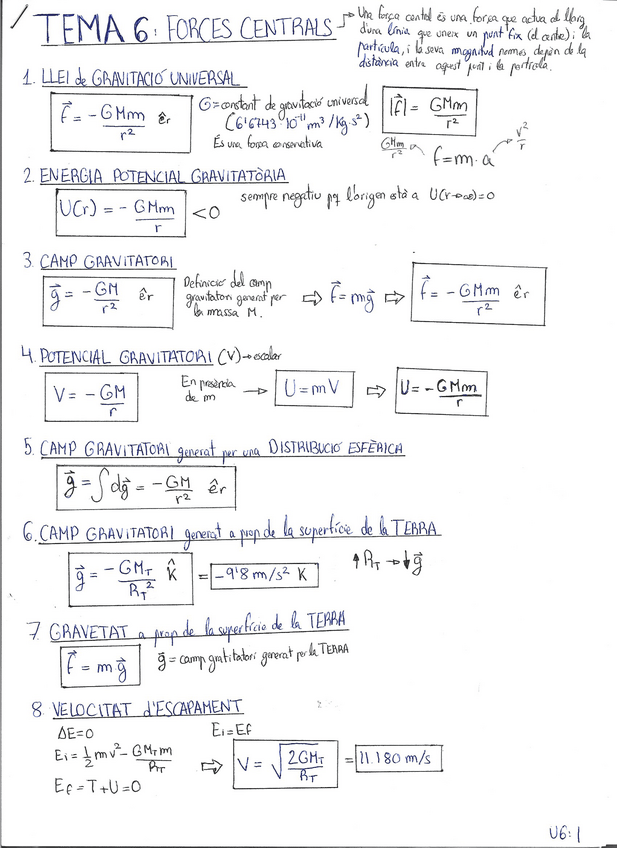 TEMA 6: FORCES CENTRALS
Una força central és una força que actua al llarg
d'una línia que uneix un punt fix (el centre) i la
partícula, i la seva magnitud només depèn de la
distància entre aquest punt i la partícula.
1. LLEI de GRAVITACIÓ UNIVERSAL
F⃗ = -GMm/r² êr
G = constant de gravitació universal
(6'6743·10⁻¹¹ m³/kg·s²)
És una força conservativa
|F⃗| = GMm/r²
GMm/r² f = m·a v²/r
2. ENERGIA POTENCIAL GRAVITATÒRIA
U(r) = -GMm/r < 0
sempre negatiu pq l'origen està a U(r→∞)=0
3. CAMP GRAVITATORI
g⃗ = -GM/r² êr
Definició del camp
gravitatori generat per
la massa M.
⇒ F⃗ = mg⃗ ⇒ F⃗ = -GMm/r² êr
4. POTENCIAL GRAVITATORI (V) → escalar
V = -GM/r
En presència
de m
→ U = mV ⇒ U = -GMm/r
5. CAMP GRAVITATORI generat per una DISTRIBUCIÓ ESFÈRICA
g⃗ = ∫dg⃗ = -GM/r² êr
6. CAMP GRAVITATORI generat a prop de la superfície de la TERRA
g⃗ = -GM_T/R_T² k̂ = -9'8 m/s² K
↑R_T → ↓g⃗
7. GRAVETAT a prop de la superfície de la TERRA
F⃗ = m·g⃗
g⃗ = camp gratitatori generat per la TERRA
8. VELOCITAT d'ESCAPAMENT
ΔE=0 Ei=Ef
Ei = ½mv² - GM_Tm/R_T
Ef = T+U=0
⇒ V = √(2GM_T/R_T) = 11.180 m/s
U6:1